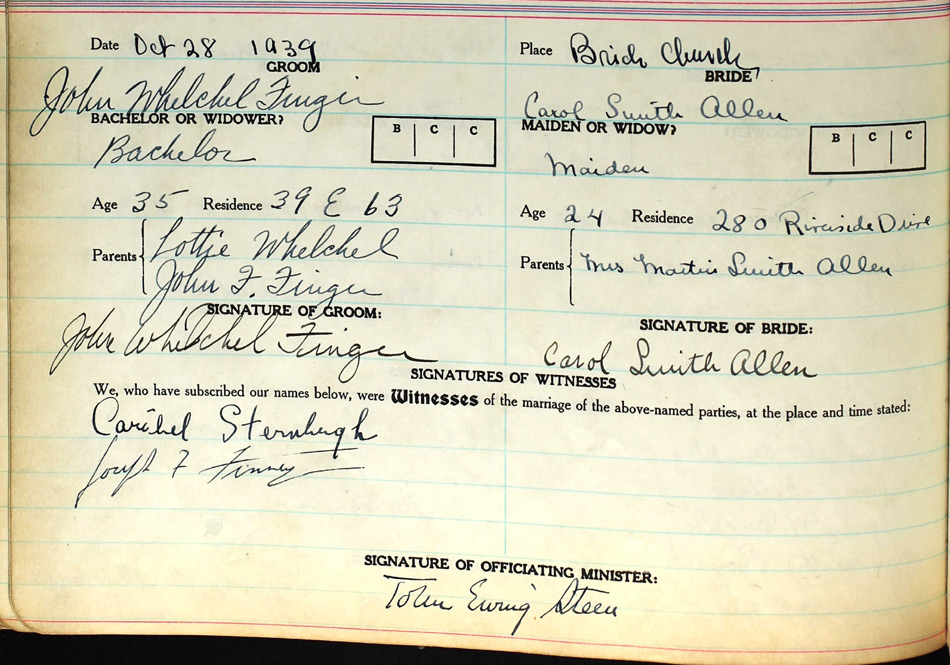 Date Oct 28 1939
Place Brick Church
GROOM
BRIDE
John Whelchel Finger
Carol Smith Allen
BACHELOR OR WIDOWER?
B C C
MAIDEN OR WIDOW?
B C C
Bachelor
Maiden
Age 35 Residence 39 E 63
Age 24 Residence 280 Riverside Drive
Parents Lottie Whelchel
John F. Finger
Parents Mrs Martin Smith Allen
SIGNATURE OF GROOM:
John Whelchel Finger
SIGNATURE OF BRIDE:
Carol Smith Allen
SIGNATURES OF WITNESSES
We, who have subscribed our names below, were Witnesses of the marriage of the above-named parties, at the place and time stated:
Joseph F Finney
SIGNATURE OF OFFICIATING MINISTER:
John Ewing Steen